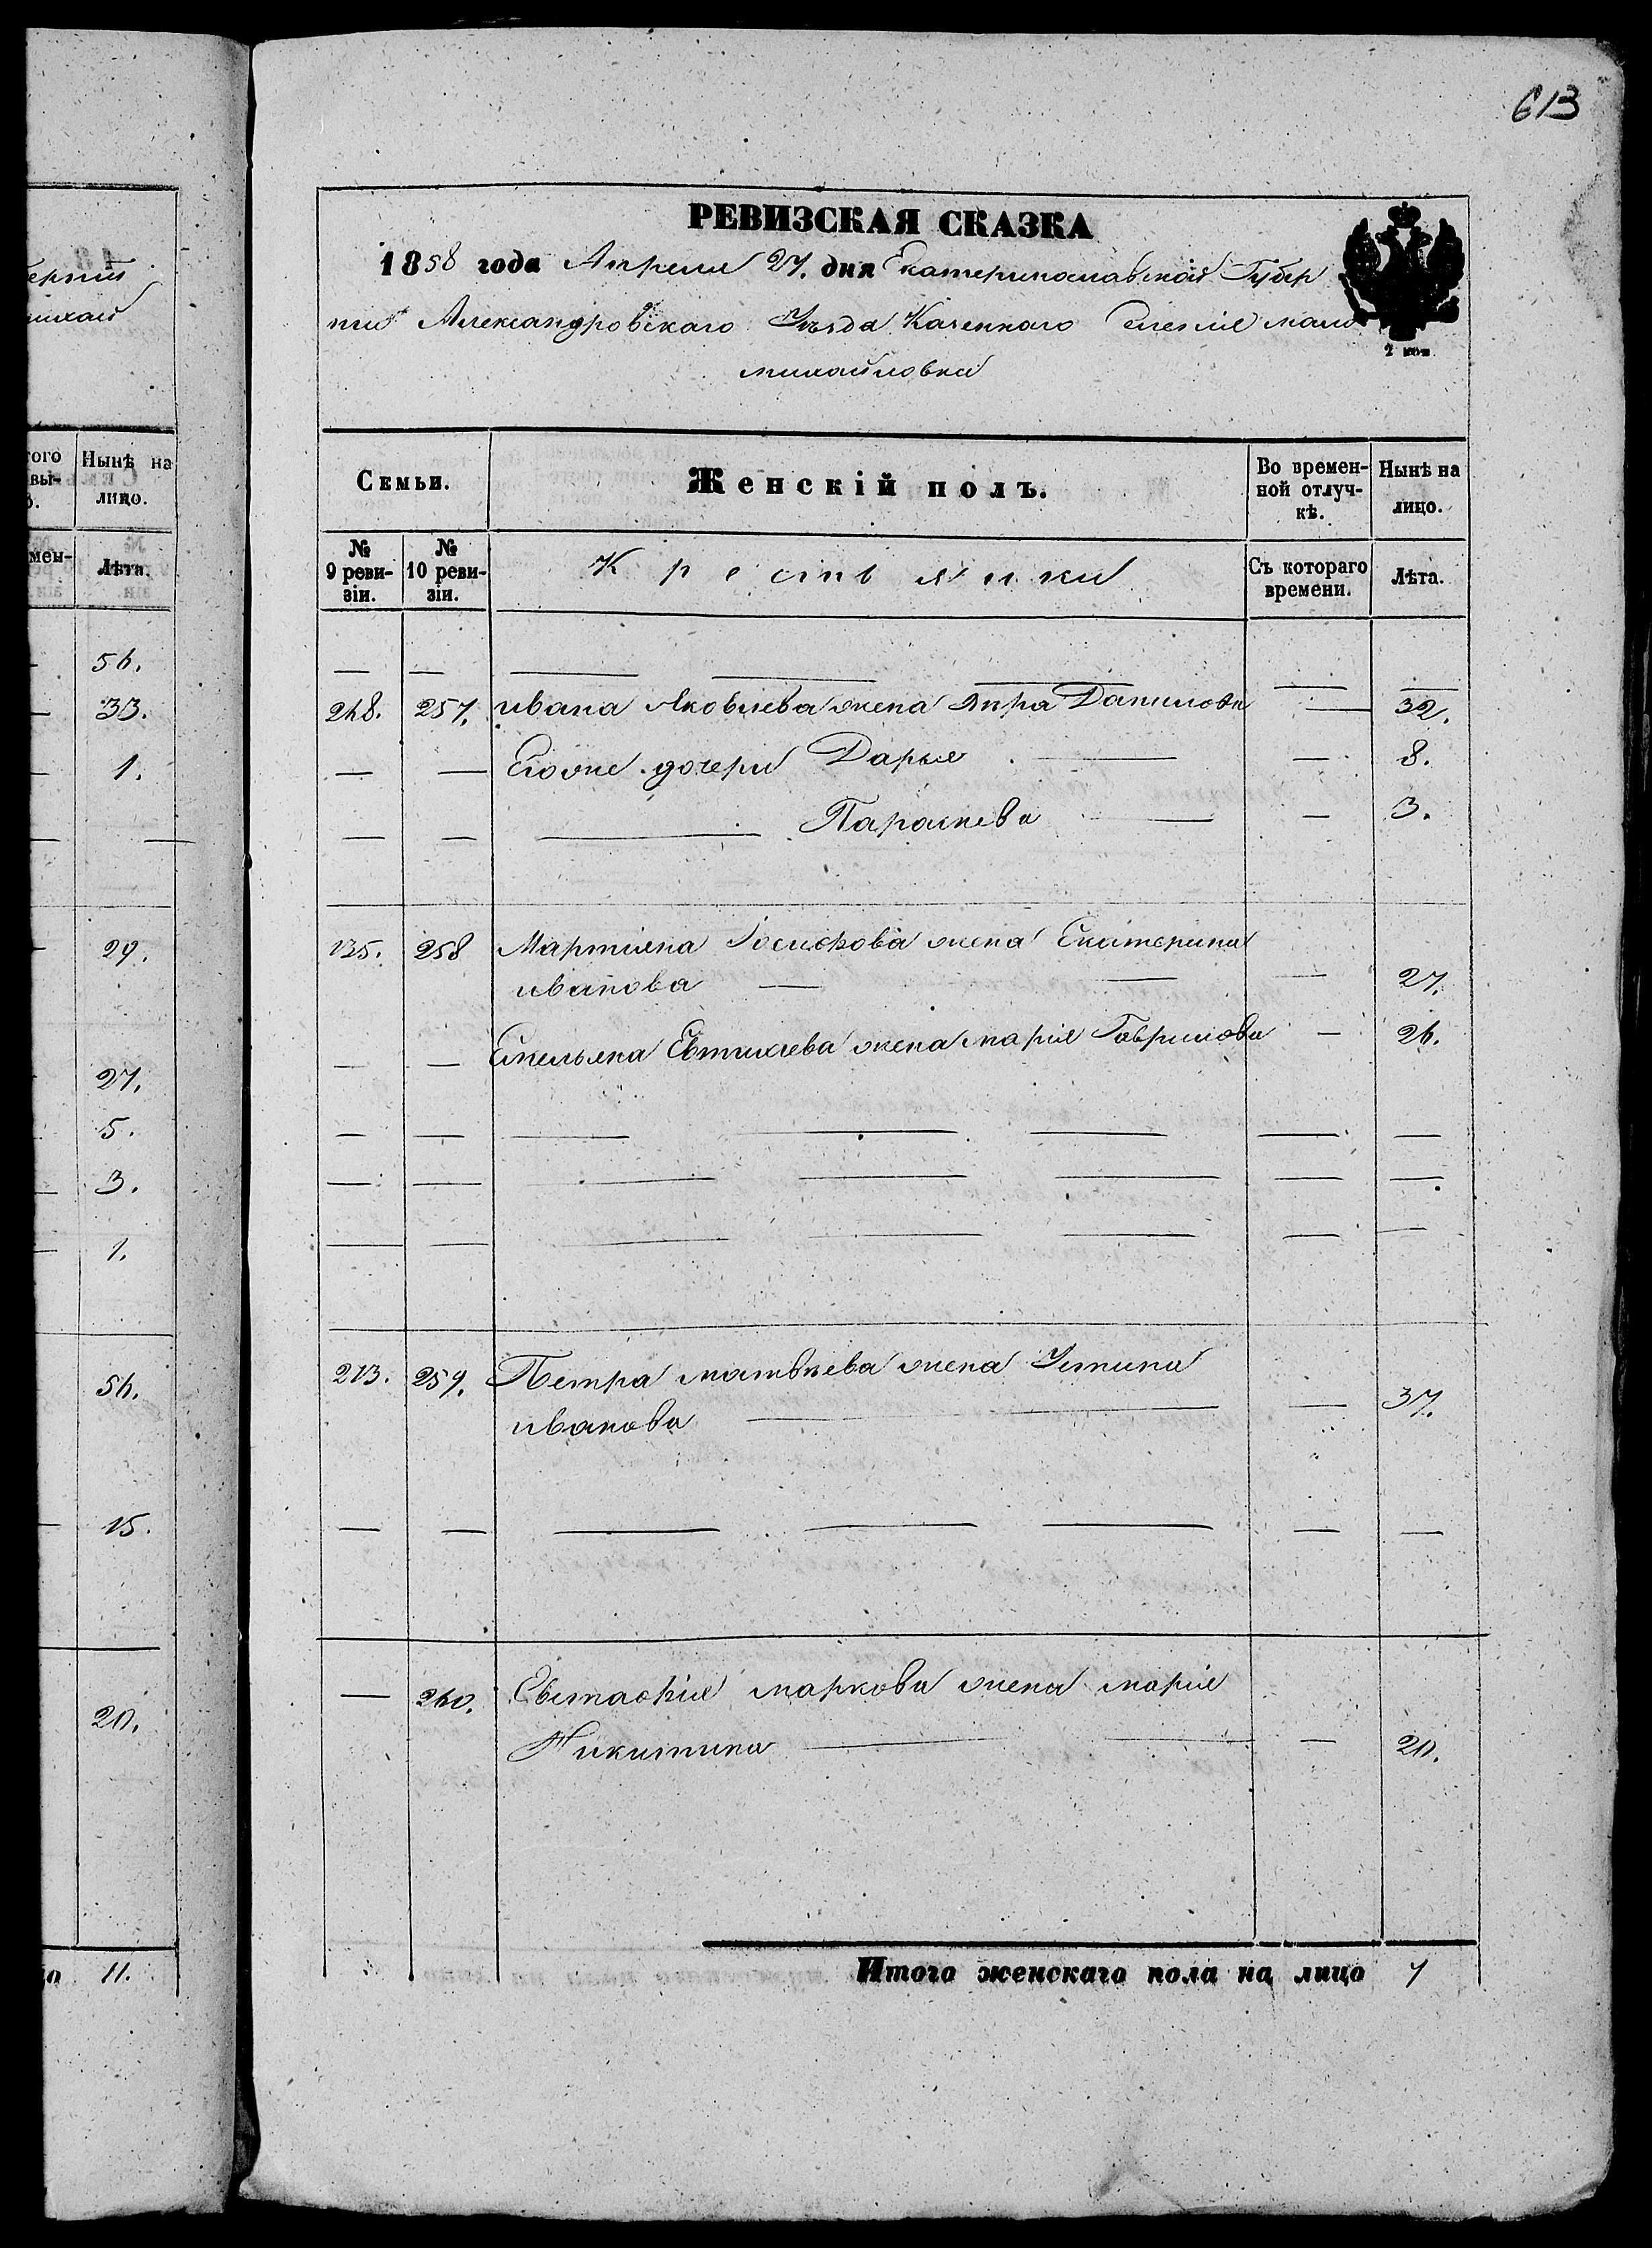 613
РЕВИЗСКАЯ СКАЗКА
1858 года Апреля 27. дня Екатеринославской Губер
нии Александровскаго Уезда Казеннаго Селения мало
михайловки
2 коп.
Семьи. Женскій полъ. Во времен-ной отлуч-кѣ. Нынѣ на лицо.
№ 9 реви-зіи. № 10 реви-зіи. Крестьянки Съ котораго времени. Лѣта.
248. 257. ивана Яковлева жена Данилова 32.
Еговые дочери Дарья 8.
Параскева 3.
135. 258 Мартина Иосифова жена Екатерина
иванова 27.
Емельяна Евтихиева жена мария Гаврилова 26.
213. 259. Петра матвеева жена Устина
иванова 37.
260. Евстафия маркова жена мария
Никитина 20.
Итого женскаго пола на лицо 7
ерніи
михай
того Нынѣ на
вы- лицо.
мен- Лѣта.
56.
33.
1.
29.
27.
5.
3.
1.
56.
15.
20.
11.